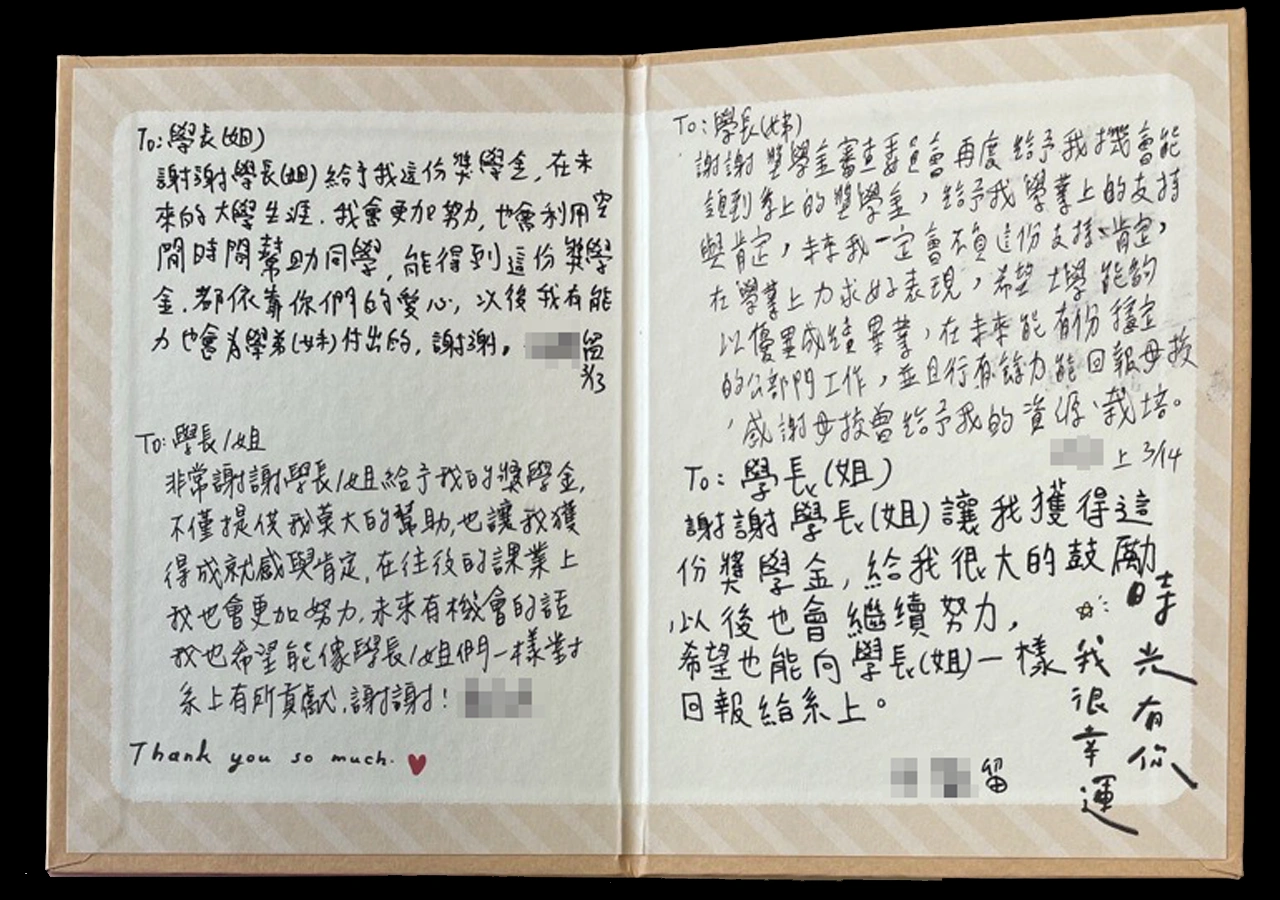 To: 學長(姐)
謝謝學長(姐)給予我這份獎學金,在未
來的大學生涯.我會更加努力,也會利用空
閒時間幫助同學,能得到這份獎學
金.都依靠你們的愛心,以後我有能
力也會為學弟(妹)付出的,謝謝。
留
3/13
To: 學長/姐
非常謝謝學長/姐給予我的獎學金,
不僅提供我莫大的幫助,也讓我獲
得成就感與肯定,在往後的課業上
我也會更加努力,未來有機會的話
我也希望能像學長/姐們一樣對
系上有所貢獻,謝謝!
Thank you so much.
To: 學長(姊)
謝謝獎學金審查委員會再度給予我機會能
領到系上的獎學金,給予我學業上的支持
與肯定,未來我一定會不負這份支持、肯定,
在學業上力求好表現,希望大學能夠
以優異成績畢業,在未來能有份穩定
的公部門工作,並且行有餘力能回報母校
,感謝母校曾給予我的資源、栽培。
上 3/14
To: 學長(姐)
謝謝學長(姐)讓我獲得這
份獎學金,給我很大的鼓勵
,以後也會繼續努力,
希望也能向學長(姐)一樣
回報給系上。
留
時光有你
我很幸運